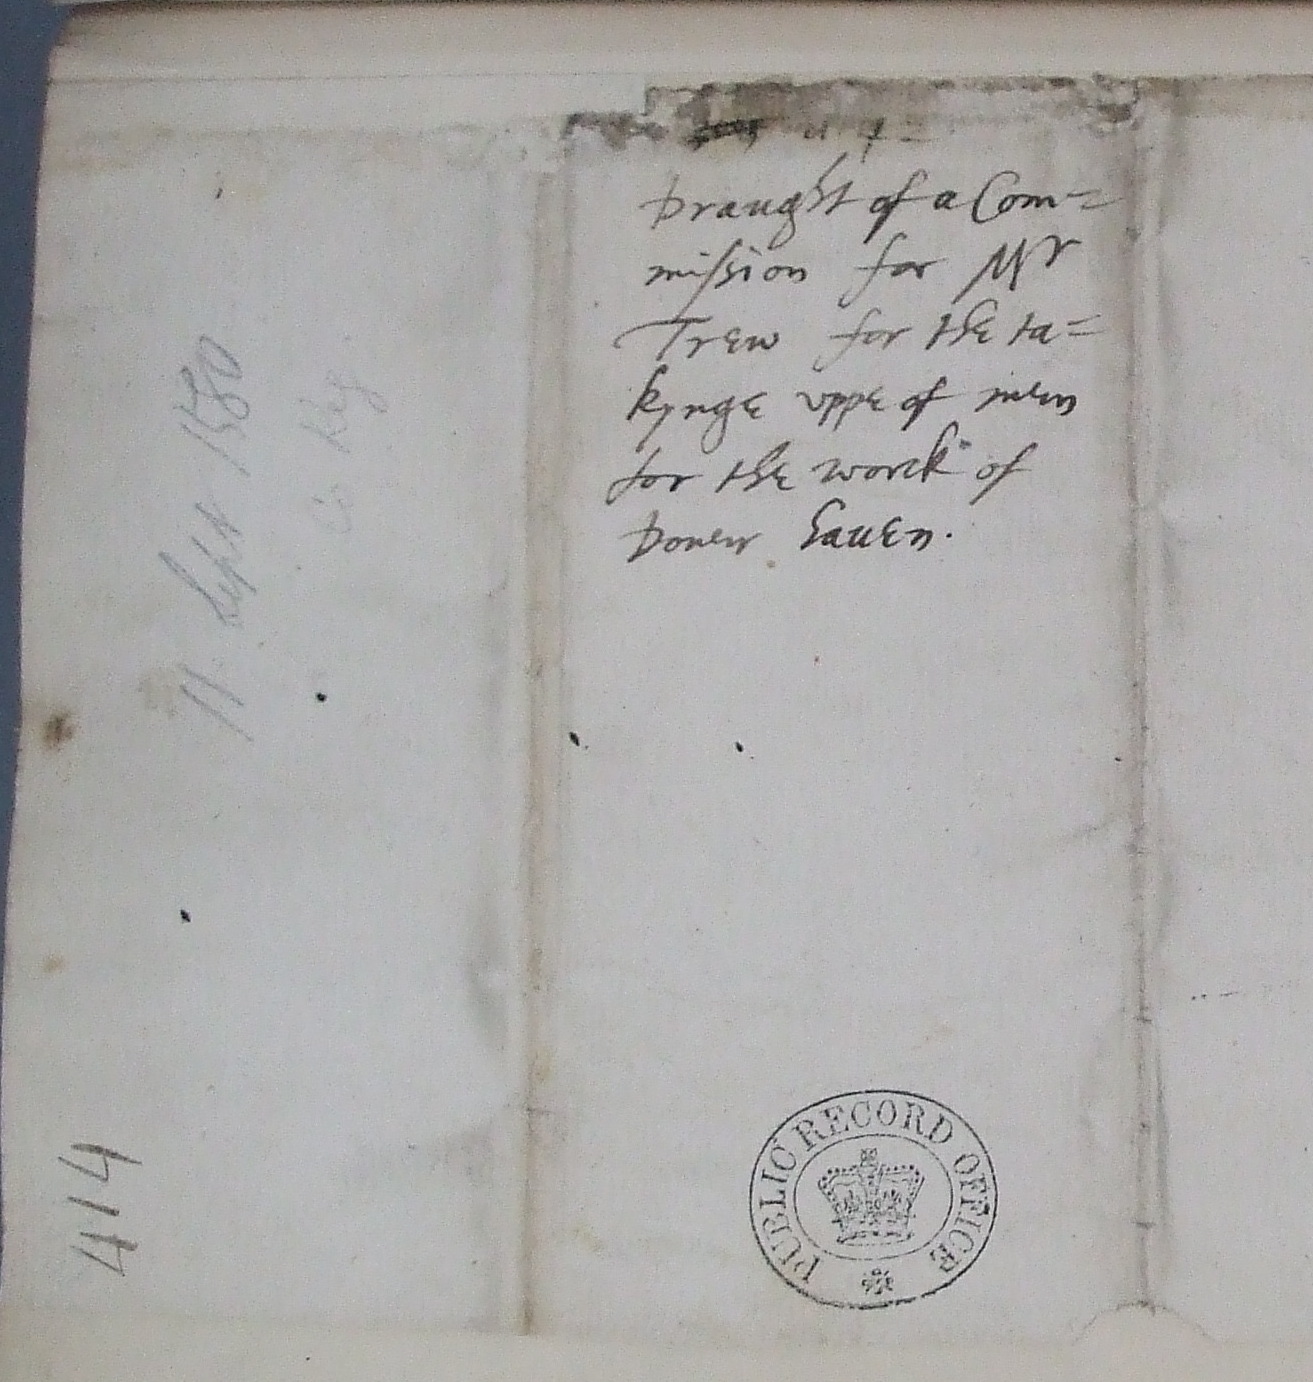 Draught of a Com=
mission for Mr
Trew for the ta=
kynge vppe of men
for the worck of
Douer hauen.
11 Sept 1580
Co Reg
414
PUBLIC RECORD OFFICE